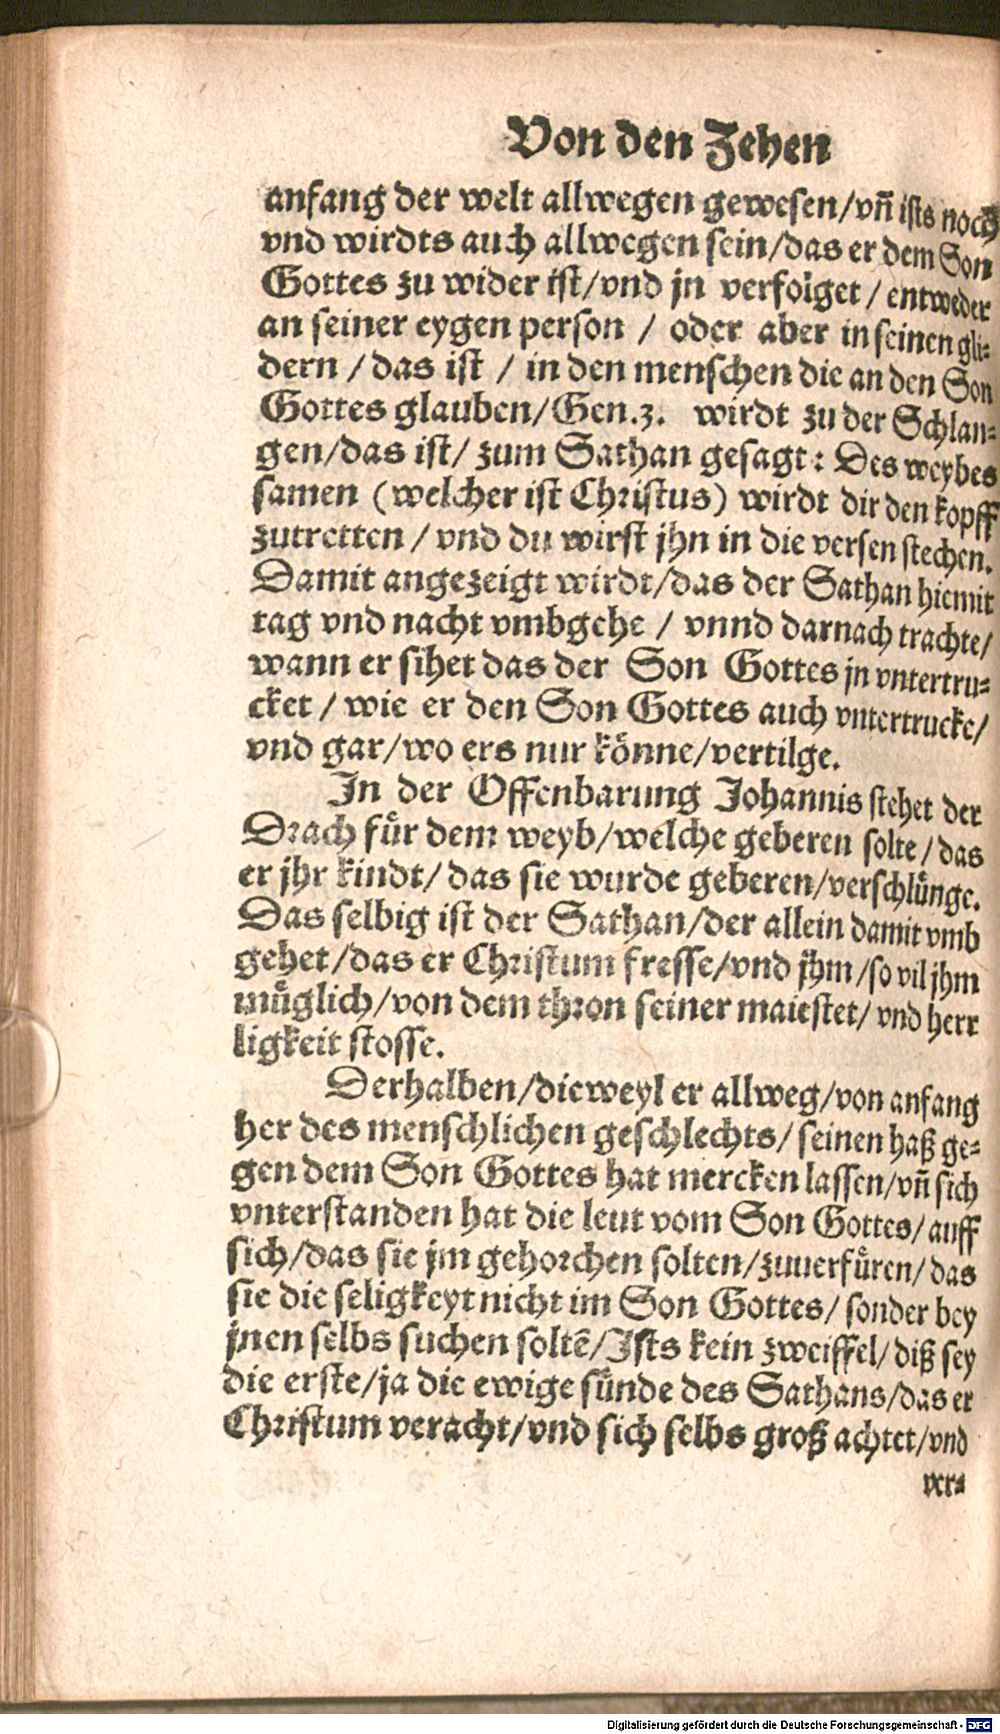 Von den Zehen
anfang der welt allwegen gewesen/vñ ists noch
vnd wirdts auch allwegen sein/das er dem Son
Gottes zu wider ist/vnd jn verfolget / entweder
an seiner eygen person / oder aber in seinen gli-
dern / das ist / in den menschen die an den Son
Gottes glauben/Gen.3. wirdt zu der Schlan-
gen/das ist/ zum Sathan gesagt: Des weybes
samen (welcher ist Christus) wirdt dir den kopff
zutretten / vnd du wirst jhn in die versen stechen.
Damit angezeigt wirdt/das der Sathan hiemit
tag vnd nacht vmbgehe / vnnd darnach trachte/
wann er sihet das der Son Gottes jn vntertru-
cket / wie er den Son Gottes auch vntertrucke/
vnd gar/wo ers nur könne/vertilge.
In der Offenbarung Johannis stehet der
Drach für dem weyb/welche geberen solte/das
er jhr kindt/das sie wurde geberen/verschlünge.
Das selbig ist der Sathan/der allein damit vmb
gehet/das er Christum fresse/vnd jhm/so vil jhm
müglich/von dem thron seiner maiestet/vnd herr
ligkeit stosse.
Derhalben/dieweyl er allweg/von anfang
her des menschlichen geschlechts/seinen haß ge-
gen dem Son Gottes hat mercken lassen/vñ sich
vnterstanden hat die leut vom Son Gottes/auff
sich/das sie jm gehorchen solten/zuuerfüren/das
sie die seligkeyt nicht im Son Gottes/sonder bey
jnen selbs suchen soltē/Ists kein zweiffel/diß sey
die erste/ja die ewige sünde des Sathans/das er
Christum veracht/vnd sich selbs groß achtet/vnd
ver-
Digitalisierung gefördert durch die Deutsche Forschungsgemeinschaft - DFG